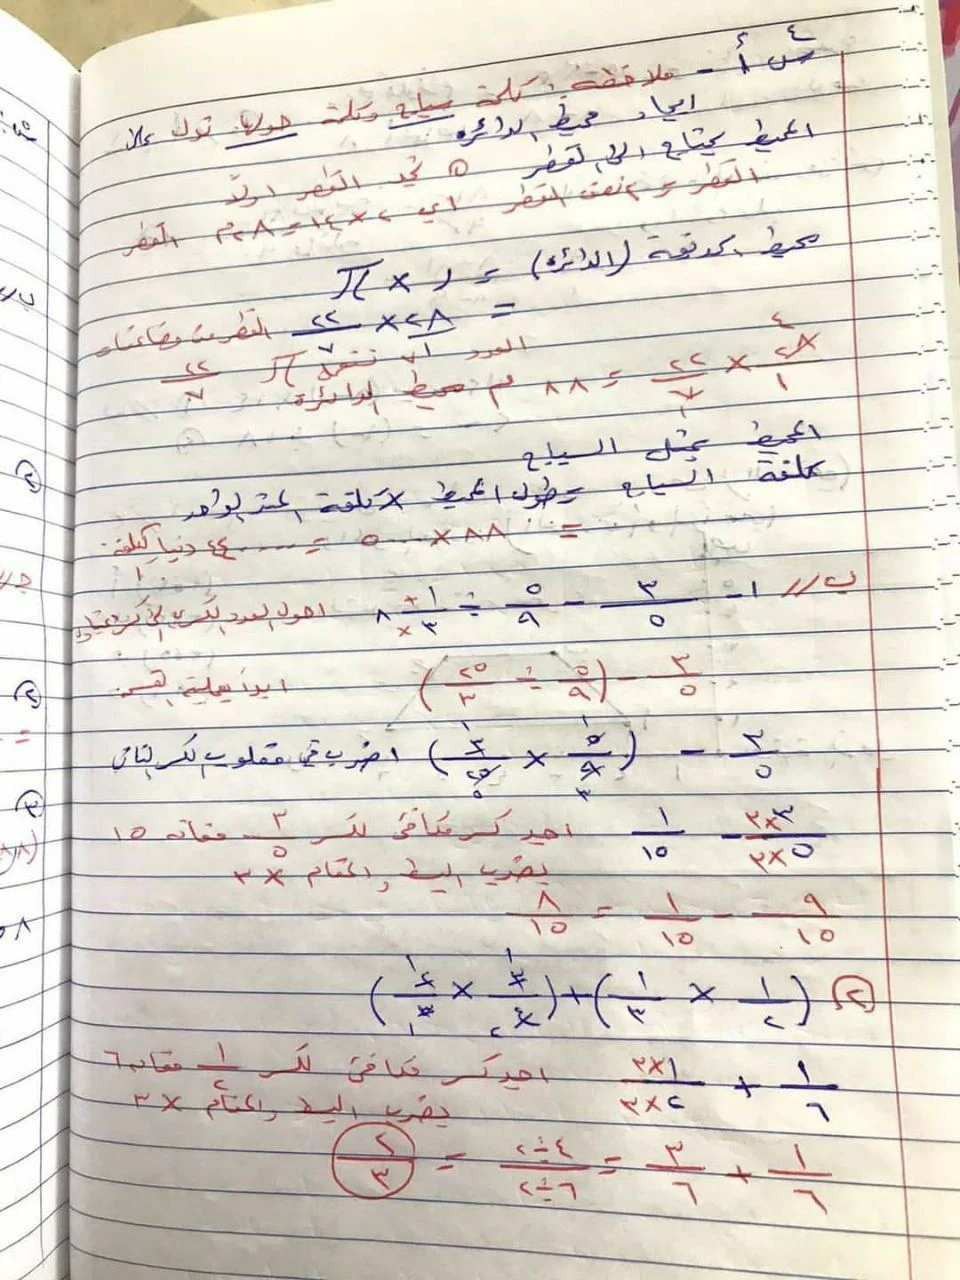 س٤ أ - ملاحظة: كلمة سياج وكلمة حولها تدل على
ايجاد محيط الدائرة
المحيط يحتاج الى القطر ∴ نجد القطر اولاً
القطر = ٢ نصف القطر اي ٢ × ١٤ = ٢٨ م القطر
محيط الحديقة (الدائرة) = ر × π
= ٢٨ × ٢٢/٧ القطر من مضاعفات
العدد ٧ نستعمل π ٢٢/٧
٢٨/١ × ٢٢/٧ = ٨٨ م محيط الدائرة
المحيط يمثل السياج
كلفة السياج = طول المحيط × كلفة المتر الواحد
= ٨٨ × ٥٠٠٠ = ٤٤٠٠٠٠ دينار كلفة
ب// ١- ٣/٥ - ٥/٩ ÷ ٨ ١/٣ احول العدد الكسري الى كسر
٣/٥ - (٥/٩ ÷ ٢٥/٣) ابدأ بعملية القسمة
٣/٥ - (٥/٩ × ٣/٢٥) اضرب في مقلوب الكسر الثاني
٣×٣/٣×٥ - ١/١٥ اجد كسر مكافئ لكسر ٣/٥ مقامه ١٥
بضرب البسط والمقام × ٣
٩/١٥ - ١/١٥ = ٨/١٥
٢ (١/٢ × ١/٣) + (
١/٦ + ٣×١/٣×٢ اجد كسر مكافئ لكسر ١/٢ مقامه ٦
بضرب البسط والمقام × ٣
١/٦ + ٣/٦ = ٤÷٢/٦÷٢ = ٢/٣